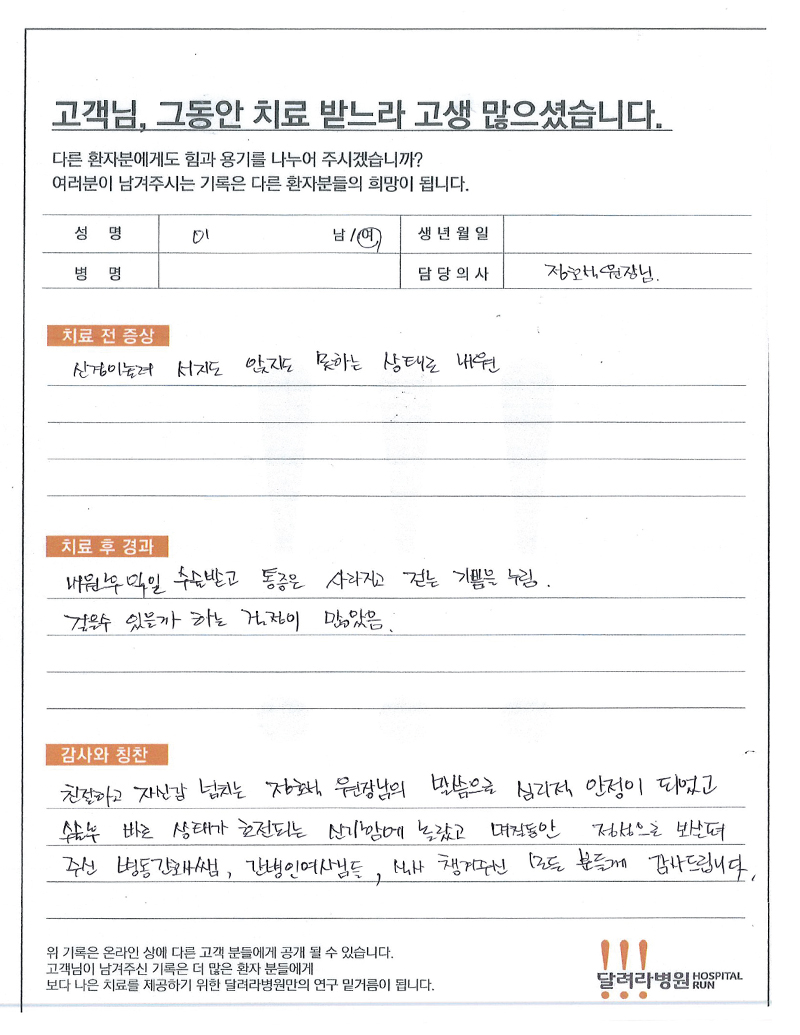 고객님, 그동안 치료 받느라 고생 많으셨습니다.
다른 환자분에게도 힘과 용기를 나누어 주시겠습니까?
여러분이 남겨주시는 기록은 다른 환자분들의 희망이 됩니다.
성 명 이 남/여 생년월일
병 명 담당의사 장호석 원장님.
치료 전 증상
신경이눌려 서지도 앉지도 못하는 상태로 내원
치료 후 경과
내원후 익일 수술받고 통증은 사라지고 걷는 기쁨을 누림.
걸을수 있을까 하는 걱정이 많았음.
감사와 칭찬
친절하고 자신감 넘치는 장호석 원장님의 말씀으로 심리적 안정이 되었고
수술후 바로 상태가 호전되는 신기함에 놀랐고 며칠동안 정성으로 보살펴
주신 병동간호쌤, 간병인여사님들, 식사 챙겨주신 모든 분들께 감사드립니다.
위 기록은 온라인 상에 다른 고객 분들에게 공개 될 수 있습니다.
고객님이 남겨주신 기록은 더 많은 환자 분들에게
보다 나은 치료를 제공하기 위한 달려라병원만의 연구 밑거름이 됩니다.
달려라병원 HOSPITAL RUN